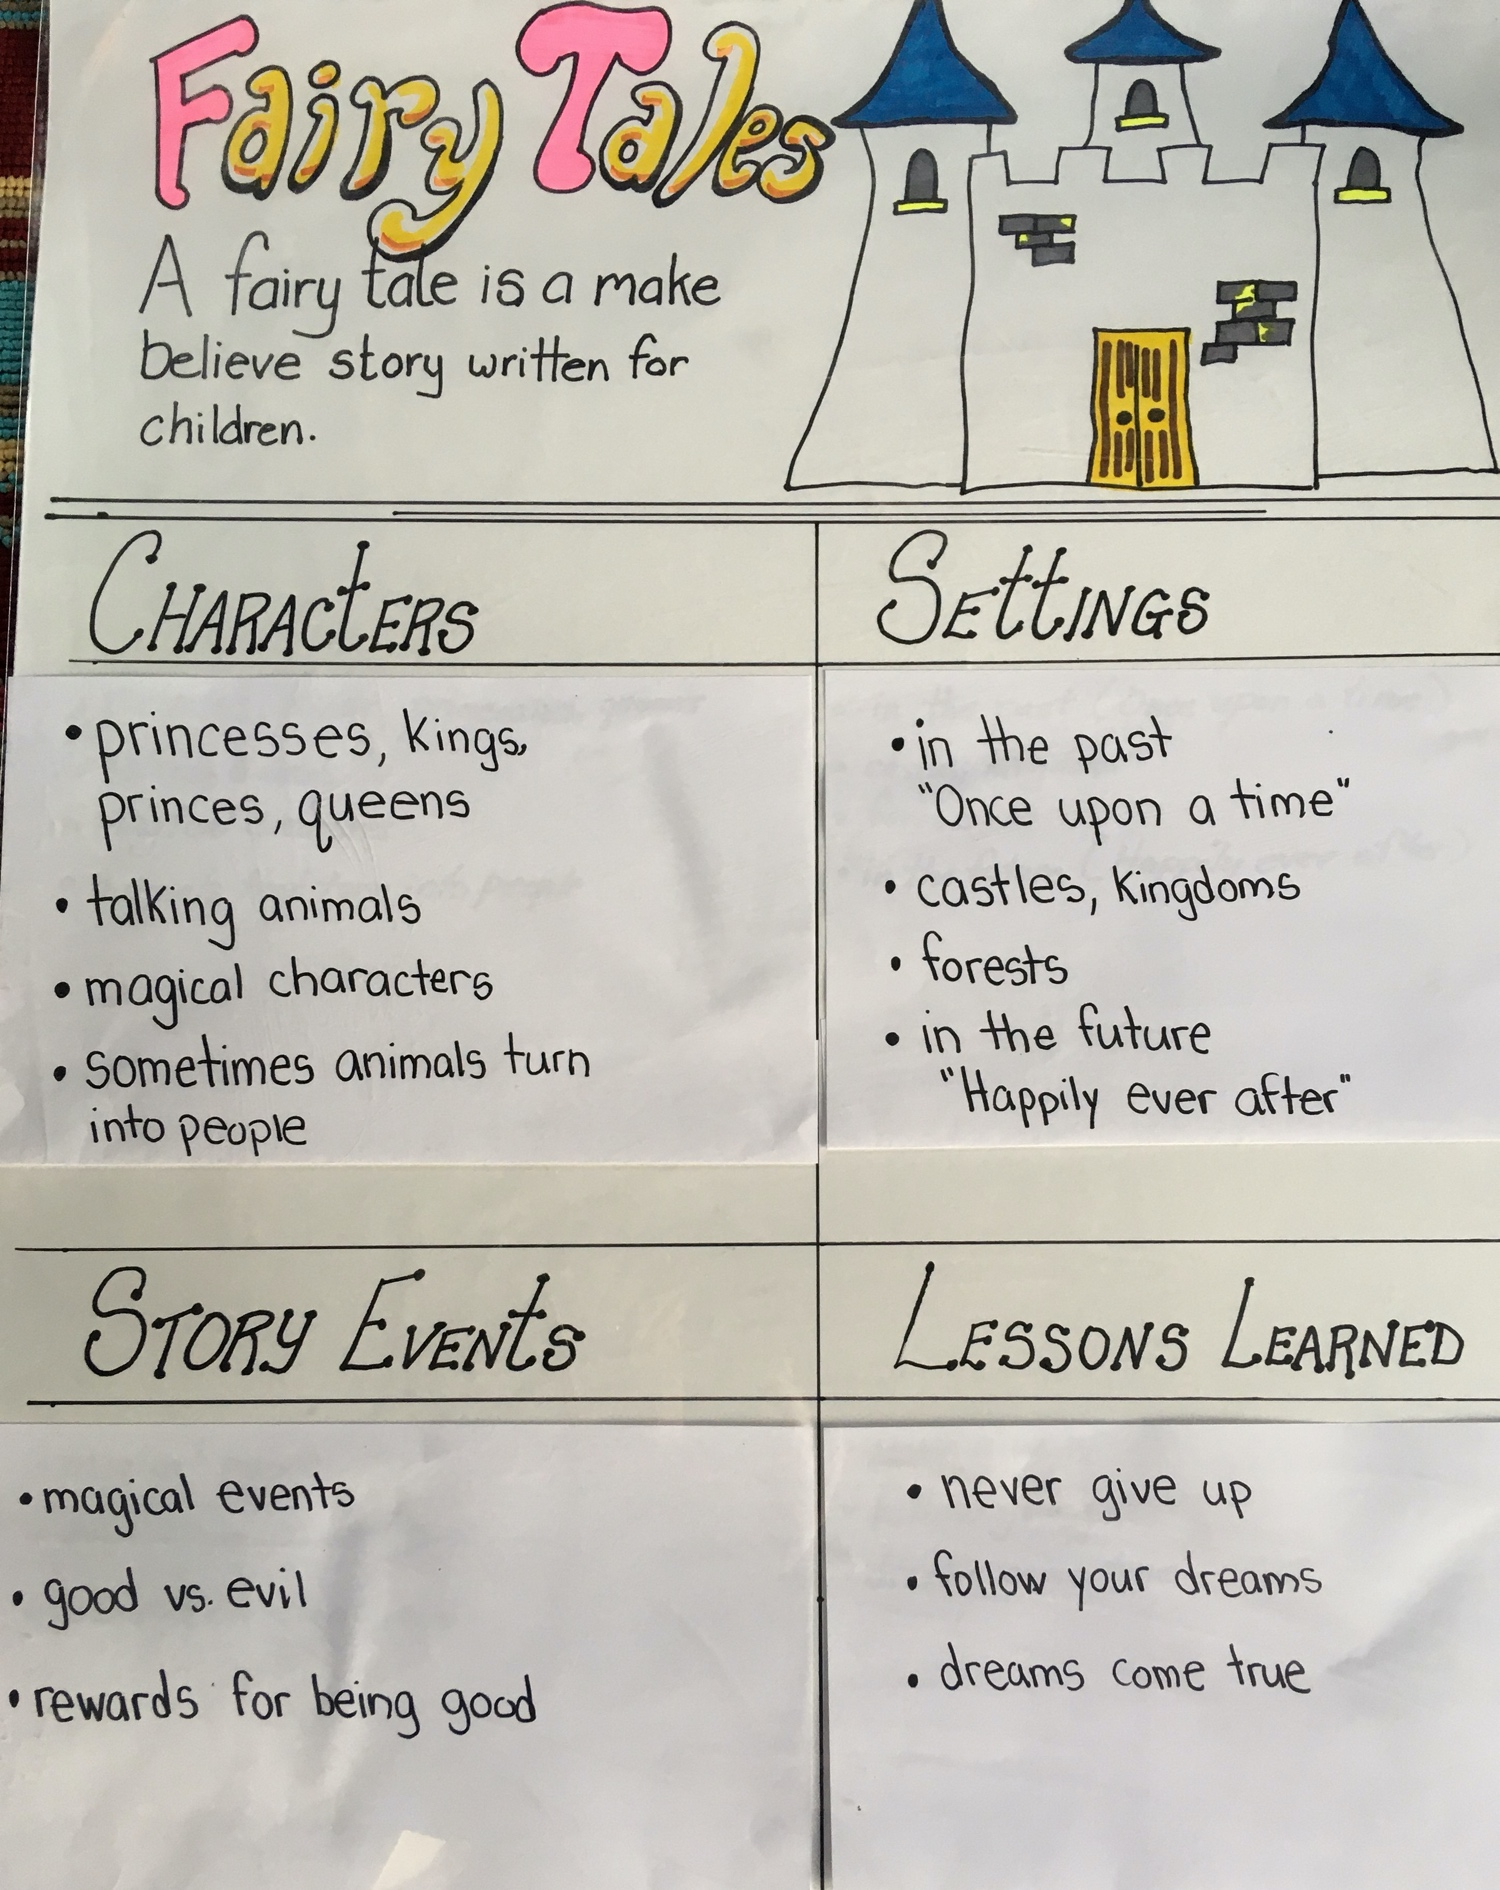 Fairy Tales
A fairy tale is a make
believe story written for
children.
CHARACTERS
• princesses, kings,
princes, queens
• talking animals
• magical characters
• sometimes animals turn
into people
SETTINGS
• in the past
"Once upon a time"
• castles, kingdoms
• forests
• in the future
"Happily ever after"
STORY EVENTS
• magical events
• good vs. evil
• rewards for being good
LESSONS LEARNED
• never give up
• follow your dreams
• dreams come true